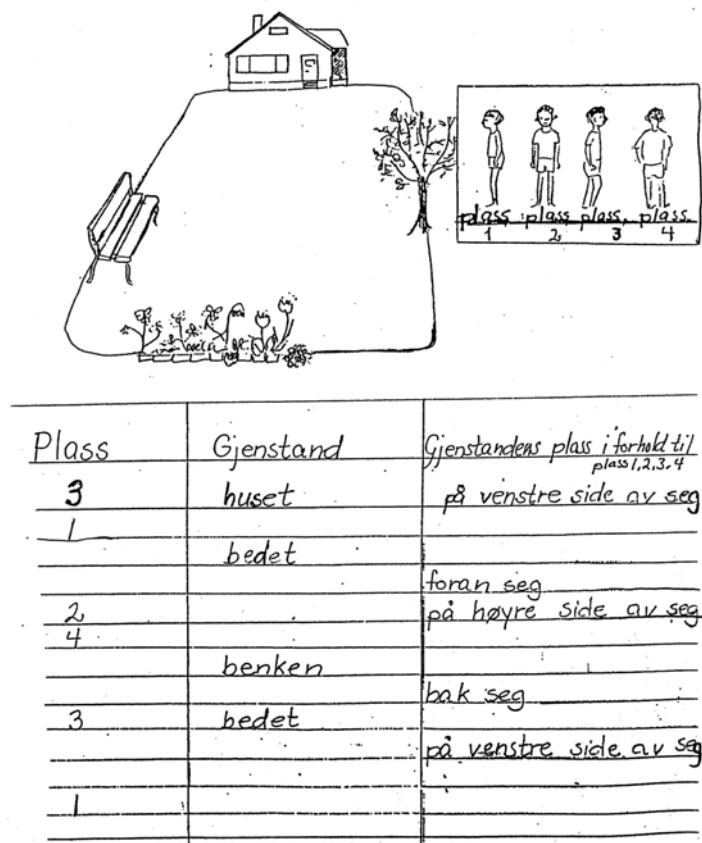 plass plass plass plass
1 2 3 4
Plass Gjenstand Gjenstandens plass i forhold til
plass 1,2,3,4
3 huset på venstre side av seg
1
bedet
foran seg
2 på høyre side av seg
4
benken
bak seg
3 bedet
på venstre side av seg
1